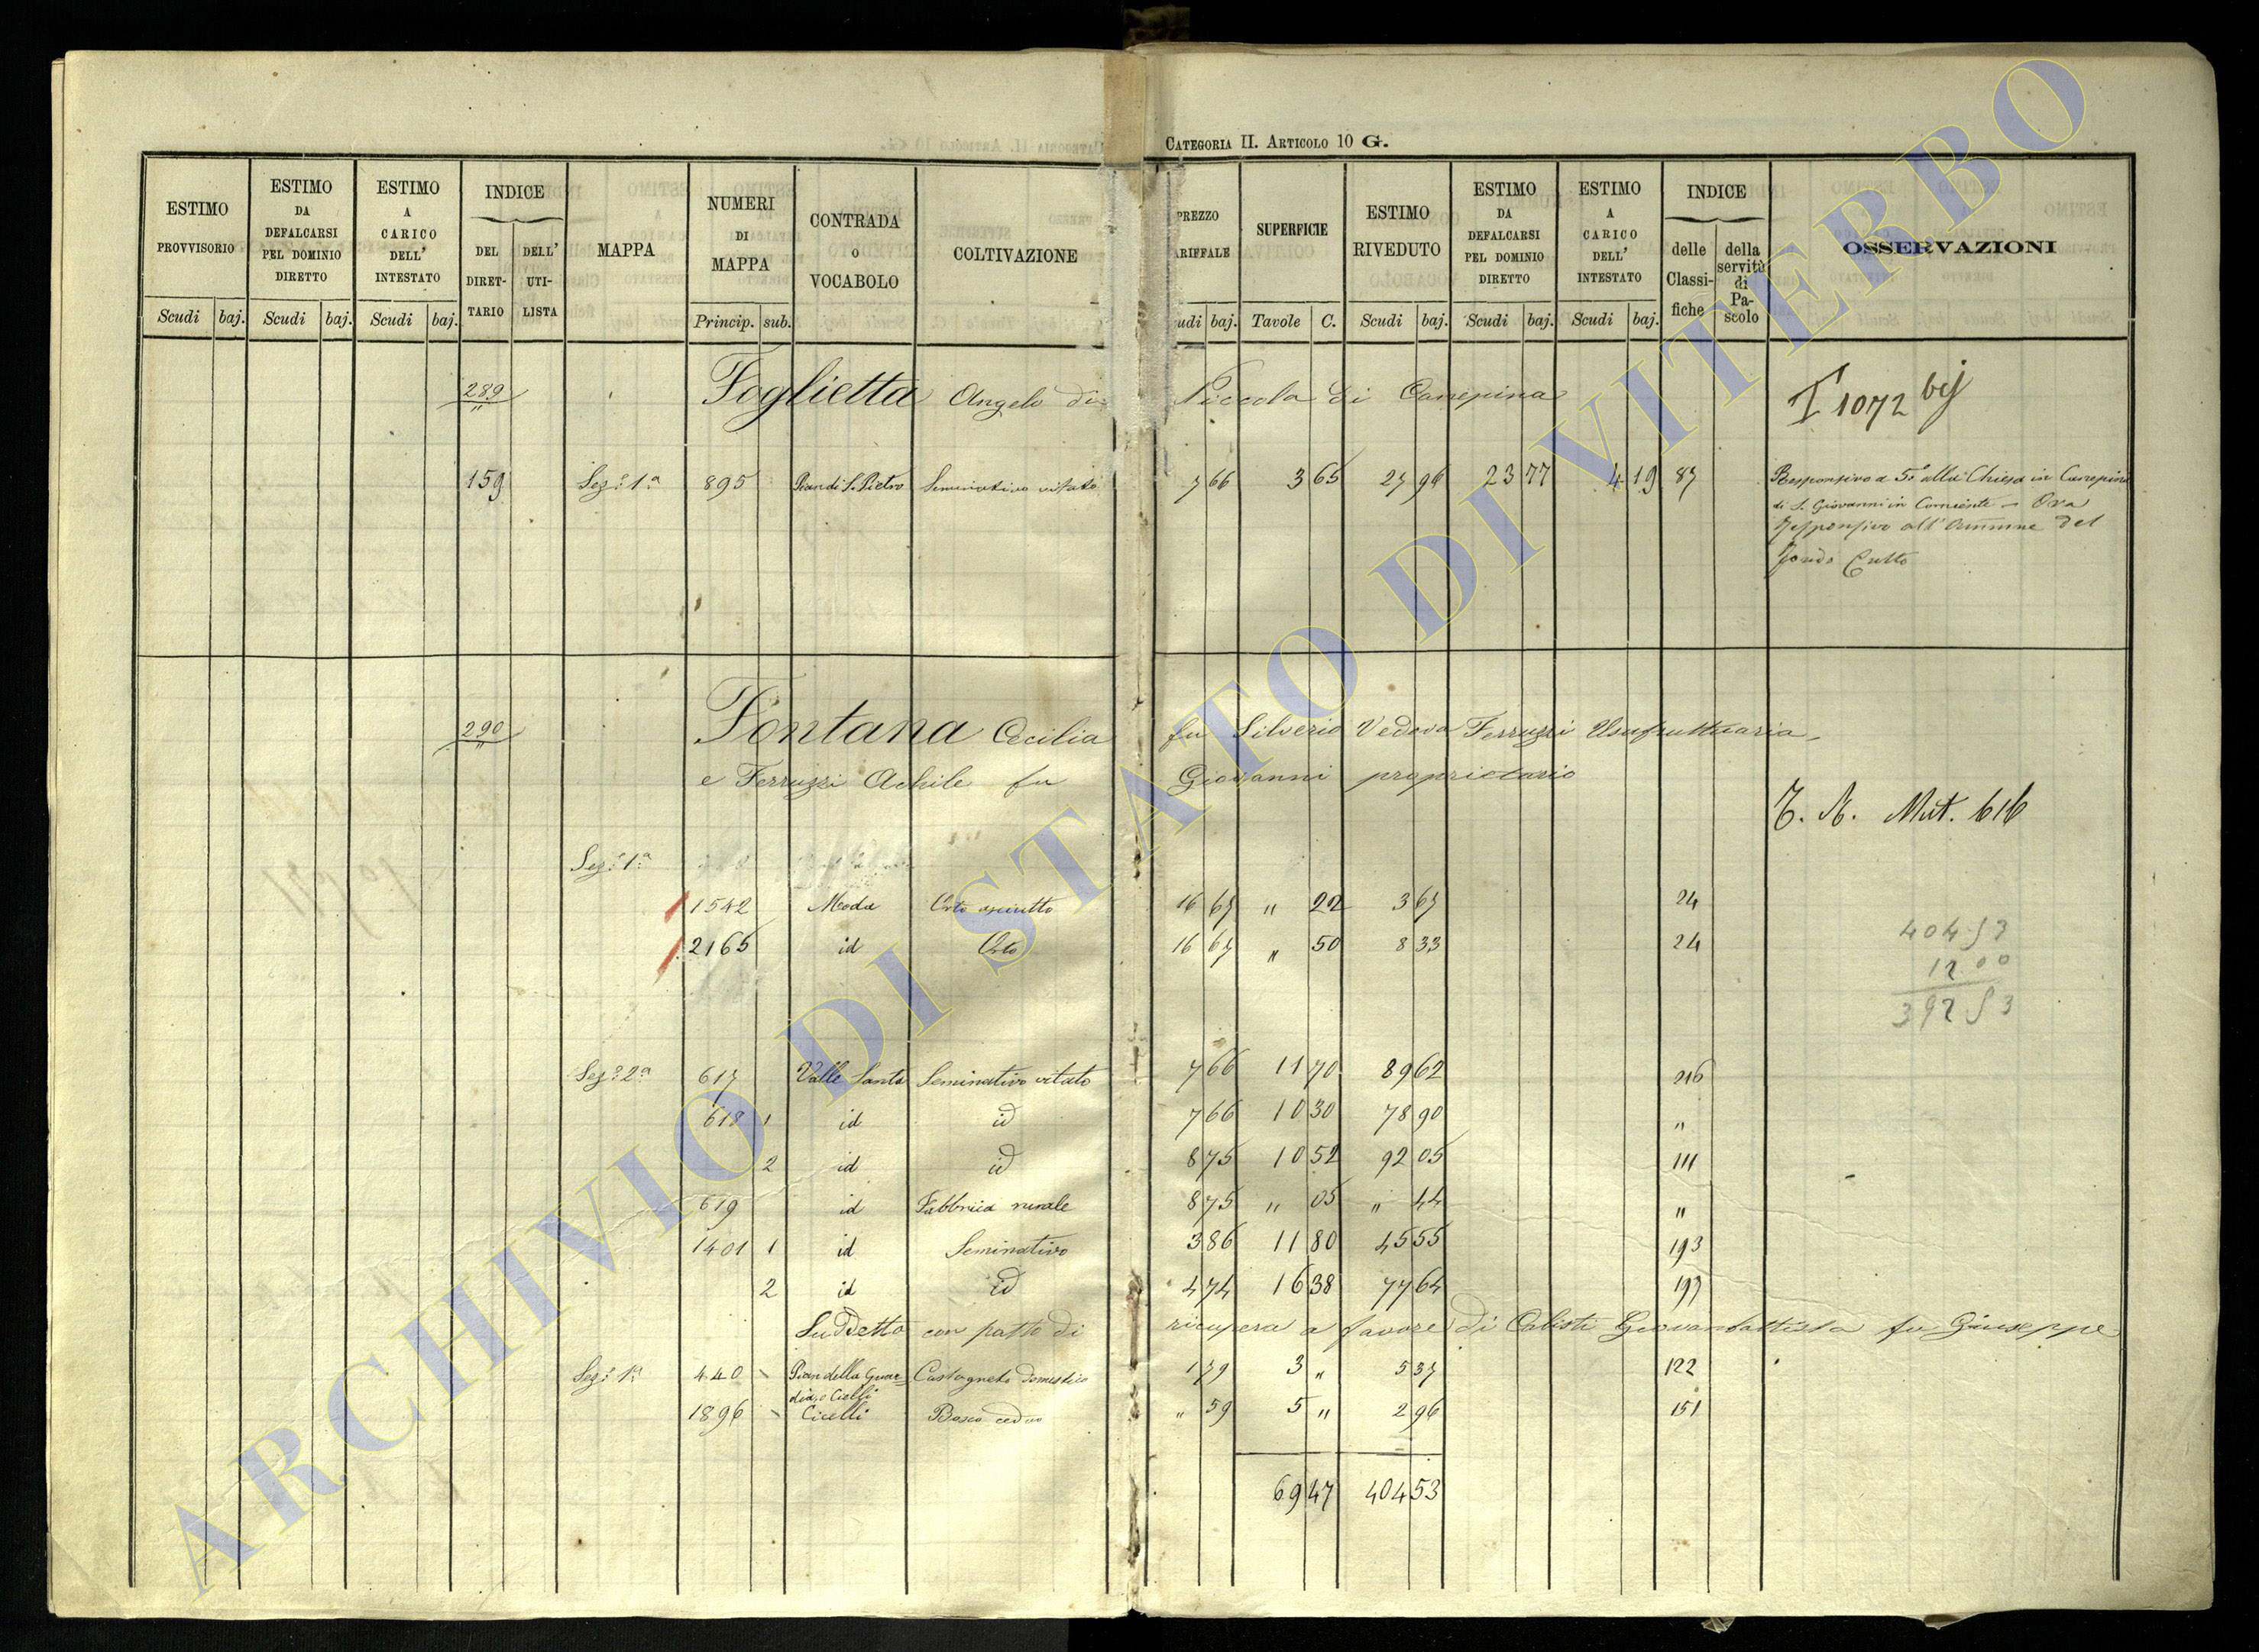 CATEGORIA II. ARTICOLO 10 G.
ESTIMO PROVVISORIO Scudi baj.
ESTIMO DA DEFALCARSI PEL DOMINIO DIRETTO Scudi baj.
ESTIMO A CARICO DELL' INTESTATO Scudi baj.
INDICE DEL DIRET-TARIO DELL' UTI-LISTA
MAPPA
NUMERI DI MAPPA Princip. sub.
CONTRADA O VOCABOLO
COLTIVAZIONE
PREZZO ARIFFALE udi baj.
SUPERFICIE Tavole C.
ESTIMO RIVEDUTO Scudi baj.
ESTIMO DA DEFALCARSI PEL DOMINIO DIRETTO Scudi baj.
ESTIMO A CARICO DELL' INTESTATO Scudi baj.
INDICE delle Classi-fiche della servitù di Pa-scolo
OSSERVAZIONI
289 Foglietta Angelo di Piccola di Canepina
T 1072 bij
159 Sez: 1a 895 Pian di S. Pietro Seminativo vitato 7 66 3 65 27 96 23 77 4 19 87 Responsivo a 5a alla Chiesa in Canepina
di S. Giovanni in
Responsivo all' del
Fondo Culto
290 Fontana Cecilia fu Silverio Vedova Ferruzzi Usufruttuaria
e Ferruzzi Achile fu Giovanni proprietario
T. N. Mut. 616
Sez: 1a
1542 Meoda Orto asciutto 16 67 " 22 3 67 24
2165 id Orto 16 67 " 50 8 33 24
404 53
12 00
392 53
Sez: 2a 617 Valle Santa Seminativo vitato 7 66 11 70 89 62 216
618 1 id id 7 66 10 30 78 90 "
2 id id 8 75 10 52 92 05 111
619 id Fabbrica rurale 8 75 " 05 " 44 "
1401 1 id Seminativo 3 86 11 80 45 55 193
2 id id 4 74 16 38 77 64 197
Suddetto con patto di ricupera a favore di Calisti Giovanbattista fu Giuseppe
Sez: 1a 440 Pian della Guar= Castagneto domestico 1 79 3 " 5 37 122
dia, e Cielli
1896 Cicelli Bosco ceduo " 59 5 " 2 96 151
69 47 404 53
ARCHIVIO DI STATO DI VITERBO